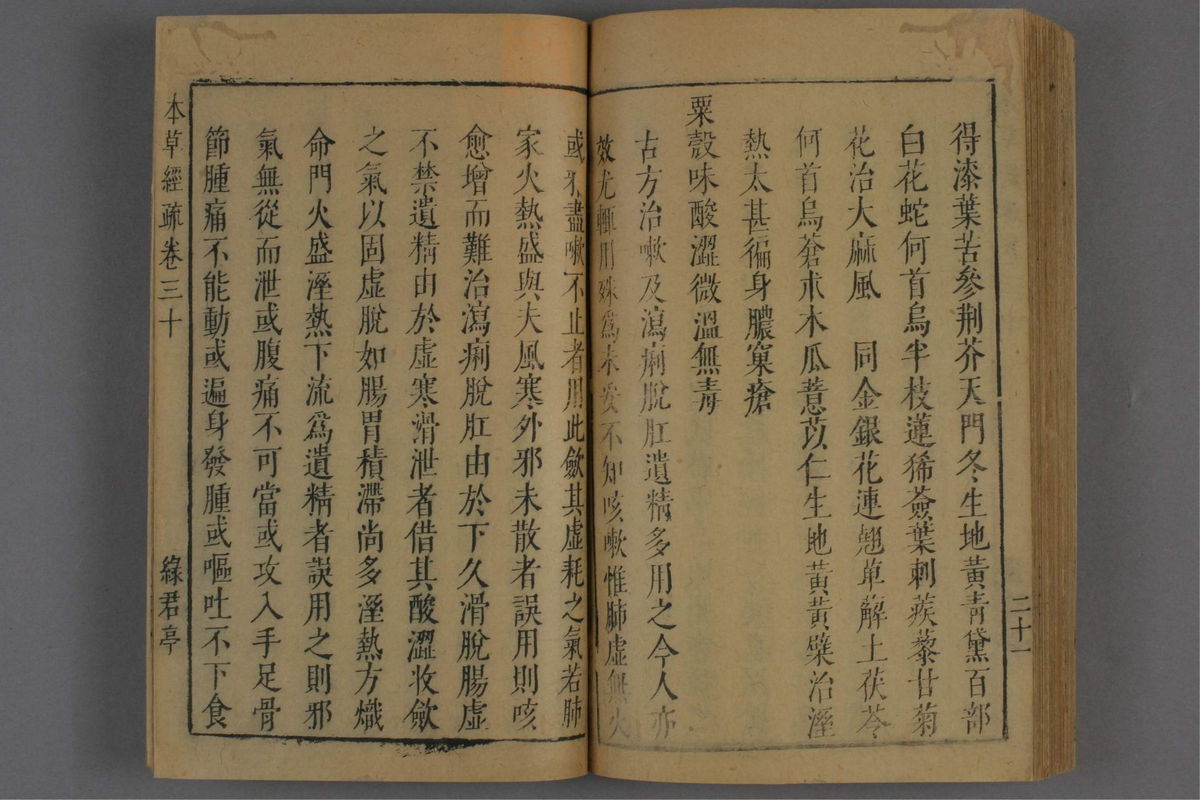 得漆葉苦參荆芥天門冬生地黃青黛百部
白花蛇何首烏半枝蓮豨薟葉刺蒺藜甘菊
花治大麻風　同金銀花連翹萆薢土茯苓
何首烏蒼朮木瓜薏苡仁生地黃黃檗治溼
熱太甚徧身膿窠瘡
粟殼味酸澀微溫無毒
古方治嗽及瀉痢脫肛遺精多用之今人亦
效尤輒用殊爲未妥不知咳嗽惟肺虛無火
二十一
或邪盡嗽不止者用此斂其虛耗之氣若肺
家火熱盛與夫風寒外邪未散者誤用則咳
愈增而難治瀉痢脫肛由於下久滑脫腸虛
不禁遺精由於虛寒滑泄者借其酸澀收斂
之氣以固虛脫如腸胃積滯尚多溼熱方熾
命門火盛溼熱下流爲遺精者誤用之則邪
氣無從而泄或腹痛不可當或攻入手足骨
節腫痛不能動或遍身發腫或嘔吐不下食
本草經疏卷三十
綠君亭